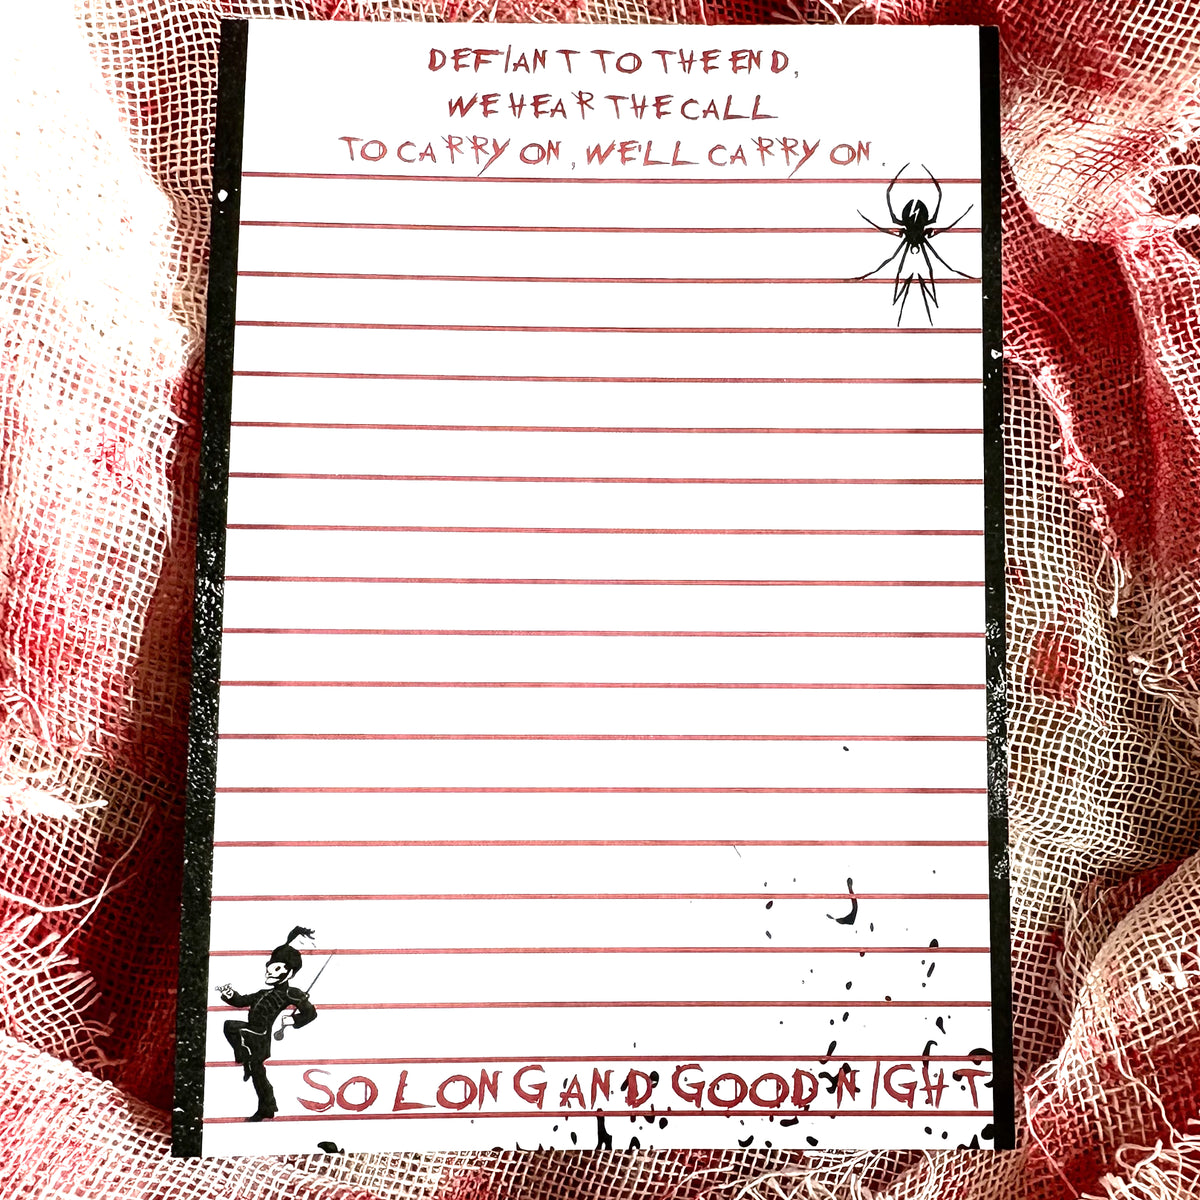 DEFIANT TO THE END,
WE HEAR THE CALL
TO CARRY ON, WE'LL CARRY ON.
SO LONG AND GOODNIGHT